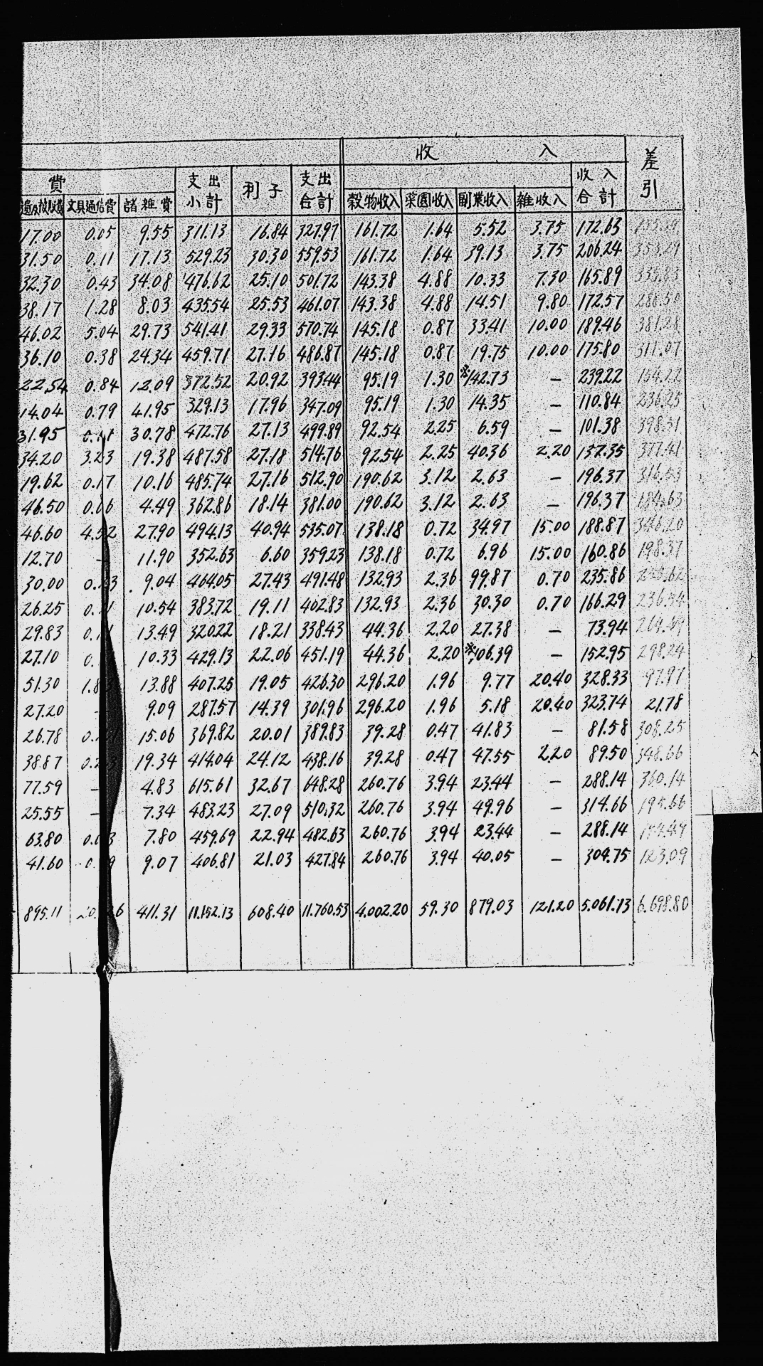 收 入 差引
費 支出小計 利子 支出合計 收入合計
文具通信費 諸雜費 穀物收入 菜園收入 副業收入 雜收入
17.00 0.05 9.55 311.13 16.84 327.97 161.72 1.64 5.52 3.75 172.63
31.50 0.11 17.13 529.23 30.30 559.53 161.72 1.64 39.13 3.75 206.24
32.30 0.43 34.08 476.62 25.10 501.72 143.38 4.88 10.33 7.30 165.89 335.83
38.17 1.28 8.03 435.54 25.53 461.07 143.38 4.88 14.51 9.80 172.57 288.50
46.02 5.04 29.73 541.41 29.33 570.74 145.18 0.87 33.41 10.00 189.46 381.28
36.10 0.38 24.34 459.71 27.16 486.87 145.18 0.87 19.75 10.00 175.80 311.07
22.54 0.84 12.09 372.52 20.92 393.44 95.19 1.30 ※142.73 — 239.22 154.22
14.04 0.79 41.95 329.13 17.96 347.09 95.19 1.30 14.35 — 110.84 236.25
31.95 30.78 472.76 27.13 499.89 92.54 2.25 6.59 — 101.38 398.51
34.20 3.23 19.38 487.58 27.18 514.76 92.54 2.25 40.36 2.20 137.35 377.41
19.62 0.17 10.16 485.74 27.16 512.90 190.62 3.12 2.63 — 196.37 316.53
46.50 0.06 4.49 362.86 18.14 381.00 190.62 3.12 2.63 — 196.37 184.63
46.60 4.52 27.90 494.13 40.94 535.07 138.18 0.72 34.97 15.00 188.87 346.20
12.70 — 11.90 352.63 6.60 359.23 138.18 0.72 6.96 15.00 160.86 198.37
30.00 9.04 464.05 27.43 491.48 132.93 2.36 99.87 0.70 235.86 255.62
26.25 10.54 383.72 19.11 402.83 132.93 2.36 30.30 0.70 166.29 236.54
29.83 13.49 320.22 18.21 338.43 44.36 2.20 27.38 — 73.94 264.49
27.10 10.33 429.13 22.06 451.19 44.36 2.20 ※106.39 — 152.95 298.24
51.30 13.88 407.25 19.05 426.30 296.20 1.96 9.77 20.40 328.33 97.97
27.20 — 9.09 287.57 14.39 301.96 296.20 1.96 5.18 20.40 323.74 21.78
26.78 15.06 369.82 20.01 389.83 39.28 0.47 41.83 — 81.58 308.25
38.87 19.34 414.04 24.12 438.16 39.28 0.47 47.55 2.20 89.50 348.66
77.59 — 4.83 615.61 32.67 648.28 260.76 3.94 23.44 — 288.14 360.14
25.55 — 7.34 483.23 27.09 510.32 260.76 3.94 49.96 — 314.66 195.66
63.80 7.80 459.69 22.94 482.63 260.76 3.94 23.44 — 288.14 194.49
41.60 9.07 406.81 21.03 427.84 260.76 3.94 40.05 — 304.75 123.09
895.11 411.31 11.152.13 608.40 11.760.53 4.002.20 59.30 879.03 121.20 5.061.73 6.698.80